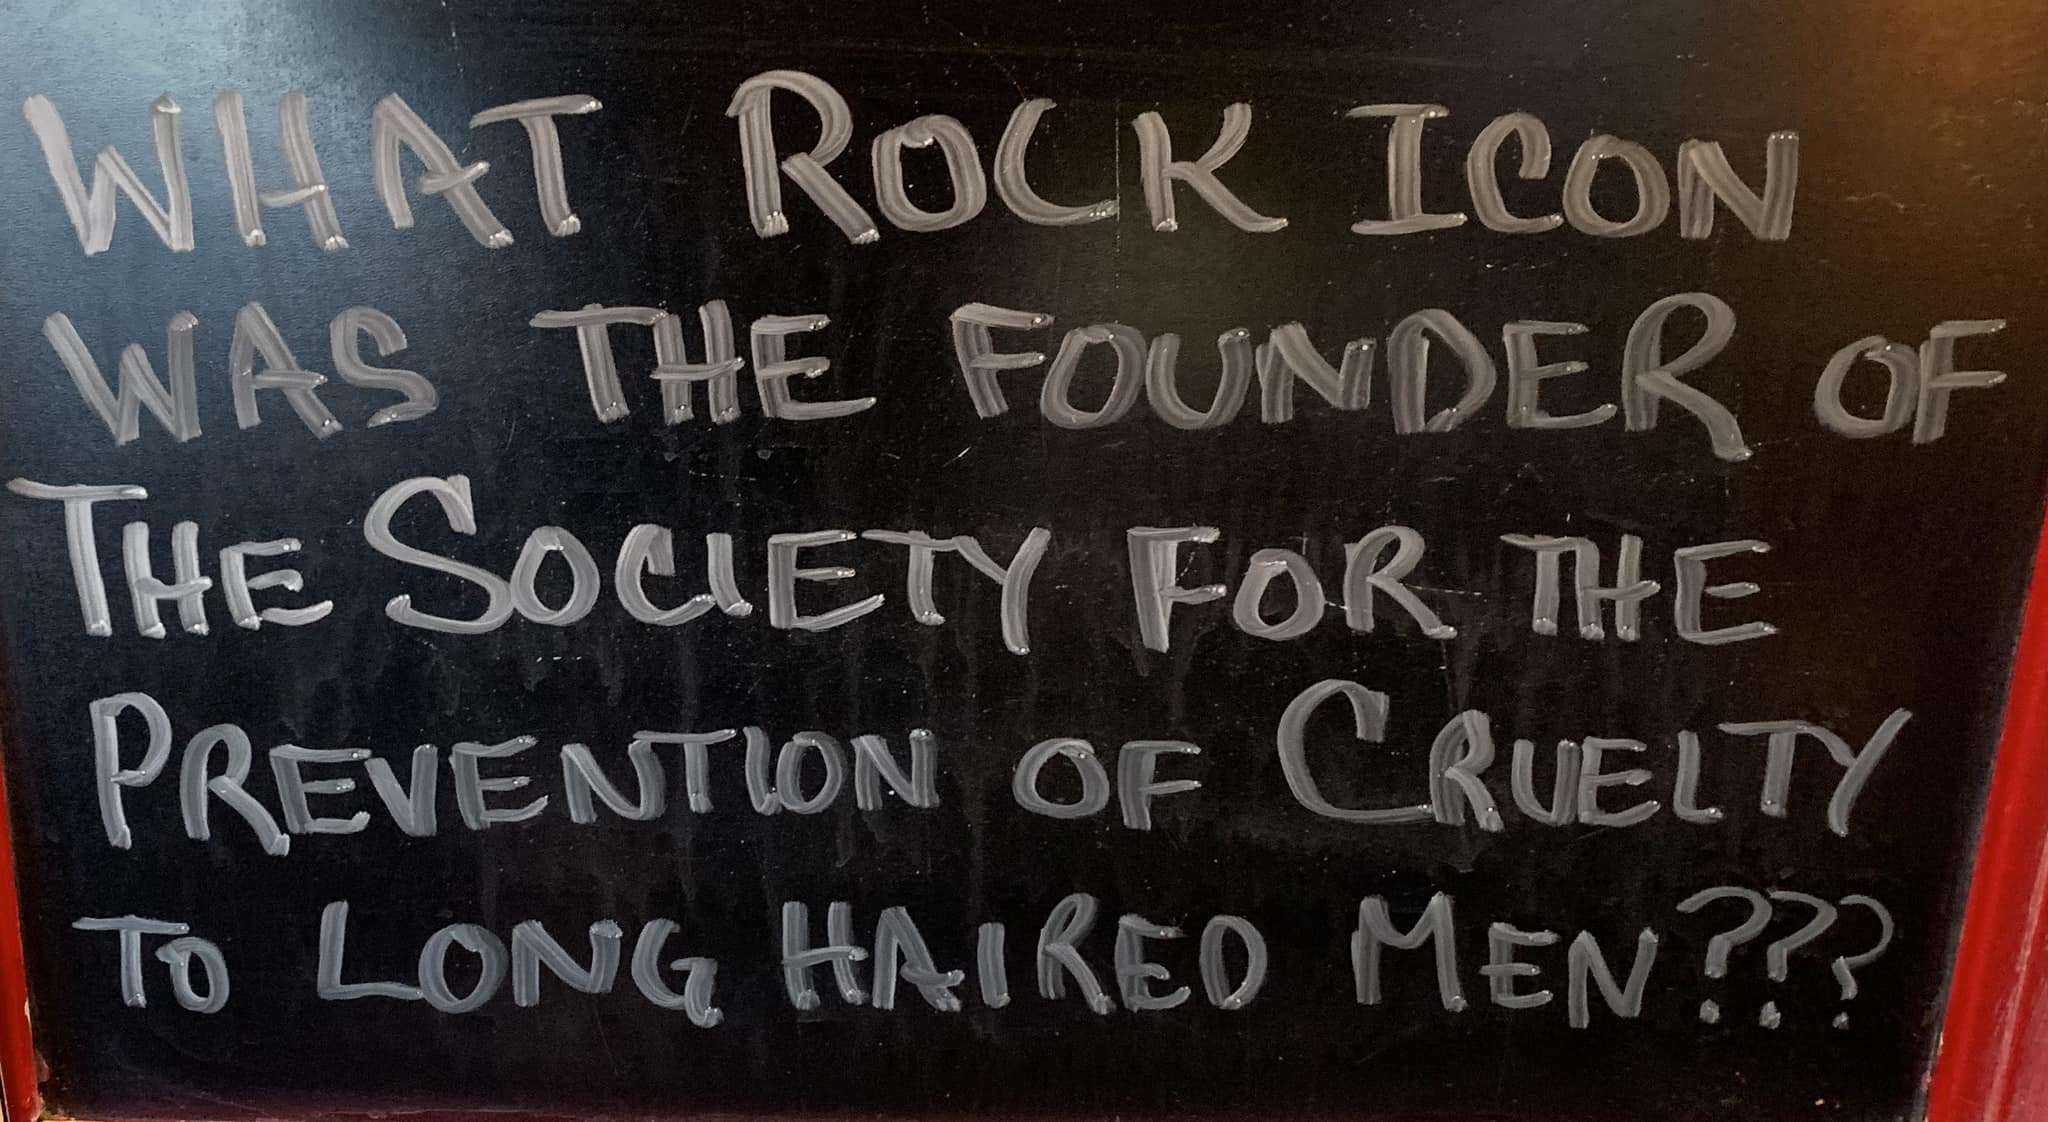 WHAT ROCK ICON
WAS THE FOUNDER OF
THE SOCIETY FOR THE
PREVENTION OF CRUELTY
TO LONG HAIRED MEN???